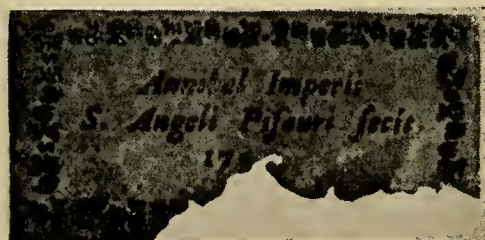 Annibal Imperii
S. Angeli Pisauri fecit
17